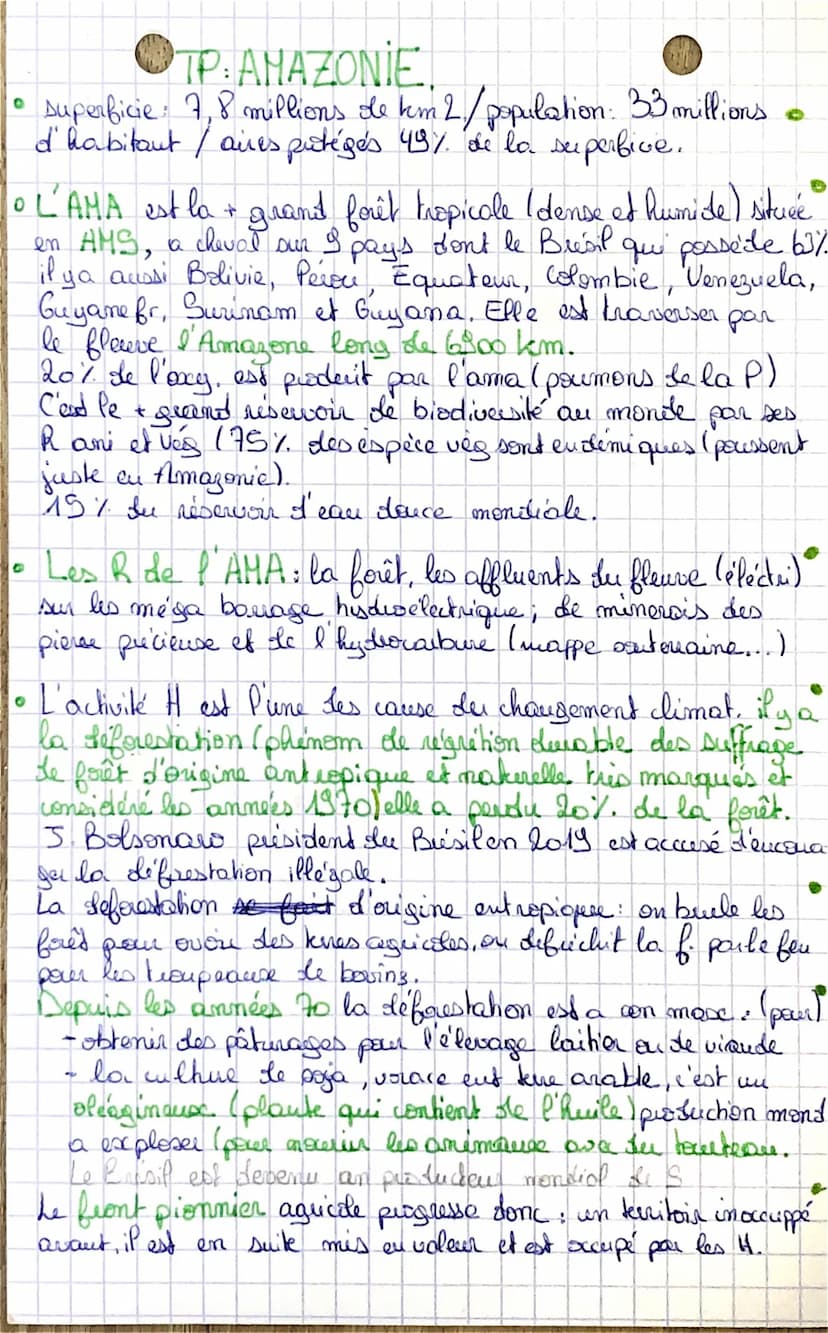 TP: AMAZONIE.
• superficie: 7,8 millions de km2 / population: 33 millions
d'habitant / aires protégés 49% de la superficie.
• L'AMA est la + grand forêt tropicale (dense et humide) située
en AMS, a cheval sur 9 pays dont le Brésil qui possède 63%.
il y a aussi Bolivie, Pérou, Équateur, Colombie, Venezuela,
Guyane fr, Surinam et Guyana. Elle est traverser par
le fleuve l'Amazone long de 6900 km.
20% de l'oxy. est produit par l'ama (poumons de la P)
C'est le + grand réservoir de biodiversité au monde par ses
R ani et vég (75% des éspèce vég sont endémiques (poussent
juste en Amazonie).
15% du réservoir d'eau douce mondiale.
• Les R de l'AMA: la forêt, les affluents du fleuve (éléctri)
sur les méga barrage hydroélectrique; de minerais des
pierre précieuse et de l'hydrocarbure (nappe souteraine...)
• L'activité H est l'une des cause du changement climat. il y a
la déforestation (phénom de régrétion durable des suffrage
de forêt d'origine antropique et naturelle très marqués et
considéré les années 1970) elle a perdu 20% de la forêt.
J. Bolsonaro président du Brésil en 2019 est accusé d'encoura
ger la défrestation illégale.
La deforestation d'origine entropique: on brule les
forêt pour avoir des terres agricoles, ou défrichit la f. par le feu
pour les troupeaux de bovins.
Depuis les années 70 la déforestation est a son max: (pour)
- obtenir des pâturages pour l'élevage laitier ou de viande
- la culture de soja, vorace en terre arable, c'est un
oléagineux (plante qui contient de l'huile) production mond
a exploser (pour nourrir les animaux avec du tourteau.
Le Brésil est devenu un producteur mondial de S
Le front pionnier agricole progresse donc: un territoir inoccuppé
avant, il est en suite mis en valeur et est occupé par les H.